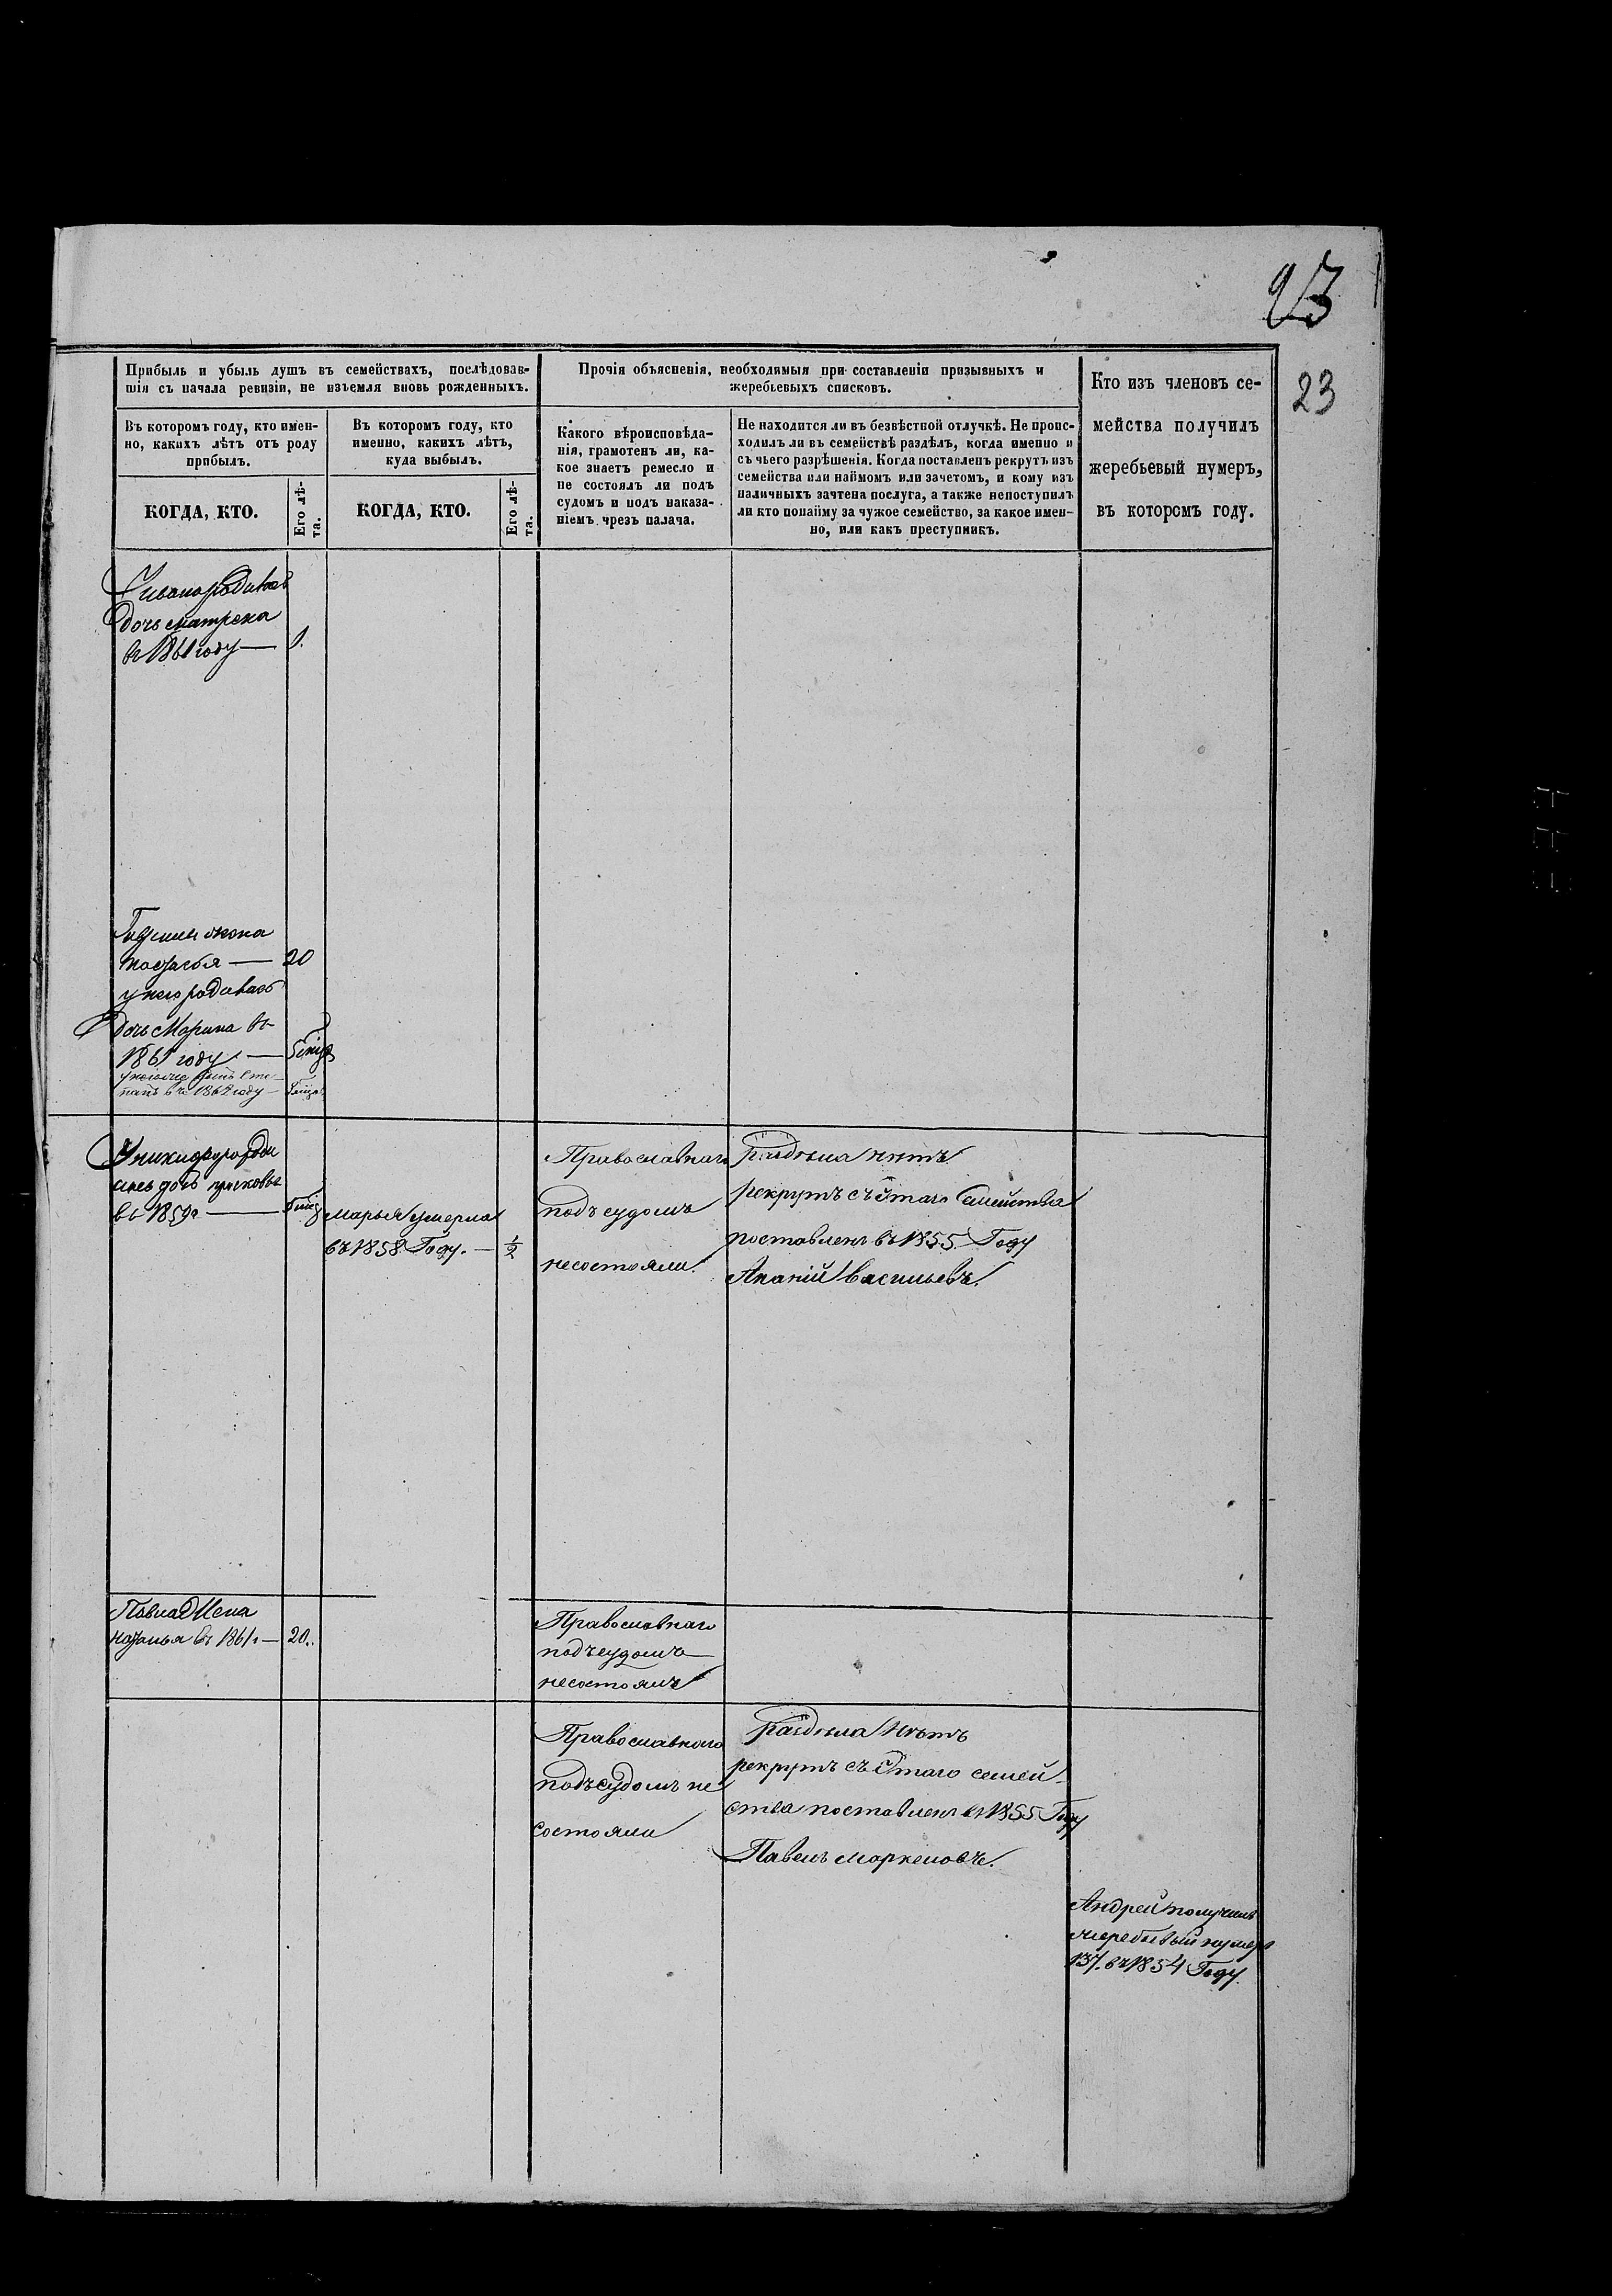 23
23
Прибыль и убыль душъ въ семействахъ, послѣдовав-
шія съ начала ревизіи, не изъемля вновь рожденныхъ.
Въ которомъ году, кто имен-
но, какихъ лѣтъ отъ роду
прибылъ.
КОГДА, КТО.
Его лѣ-
та.
Въ которомъ году, кто
именно, какихъ лѣтъ,
куда выбылъ.
КОГДА, КТО.
Его лѣ-
та.
Прочія объясненія, необходимыя при составленіи призывныхъ и
жеребьевыхъ списковъ.
Какого вѣроисповѣда-
нія, грамотенъ ли, ка-
кое знаетъ ремесло и
не состоялъ ли подъ
судомъ и подъ наказа-
ніемъ чрезъ палача.
Не находится ли въ безвѣстной отлучкѣ. Не проис-
ходилъ ли въ семействѣ раздѣлъ, когда именно и
съ чьего разрѣшенія. Когда поставленъ рекрутъ изъ
семейства или наймомъ или зачетомъ, и кому изъ
наличныхъ зачтена послуга, а также непоступилъ
ли кто понайму за чужое семейство, за какое имен-
но, или какъ преступникъ.
Кто изъ членовъ се-
мейства получилъ
жеребьевый нумеръ,
въ которомъ году.
дочь матрена
въ 1861 году — 1.
жена
— 20
у него родилась
дочь Марина въ
1861 году —
въ 1862 году —
дочь
въ 1859 —
Марья умерла
въ 1858 Году. — 1/2
Православнаго
подъ судомъ
несостояли.
раздѣла нѣтъ
рекрутъ съ этаго семейства
поставленъ въ 1855 Году
Ананій васильевъ.
Павла жена
въ 1861 — 20.
Православнаго
подъ судомъ
несостоялъ
Православнаго
подъ судомъ не
состояли
раздѣла нѣтъ
рекрутъ съ этаго семей-
ства поставленъ въ 1855 Году
Павелъ маркеловъ.
Андрей получилъ
жеребьевый нумеръ
137. въ 1854 Году